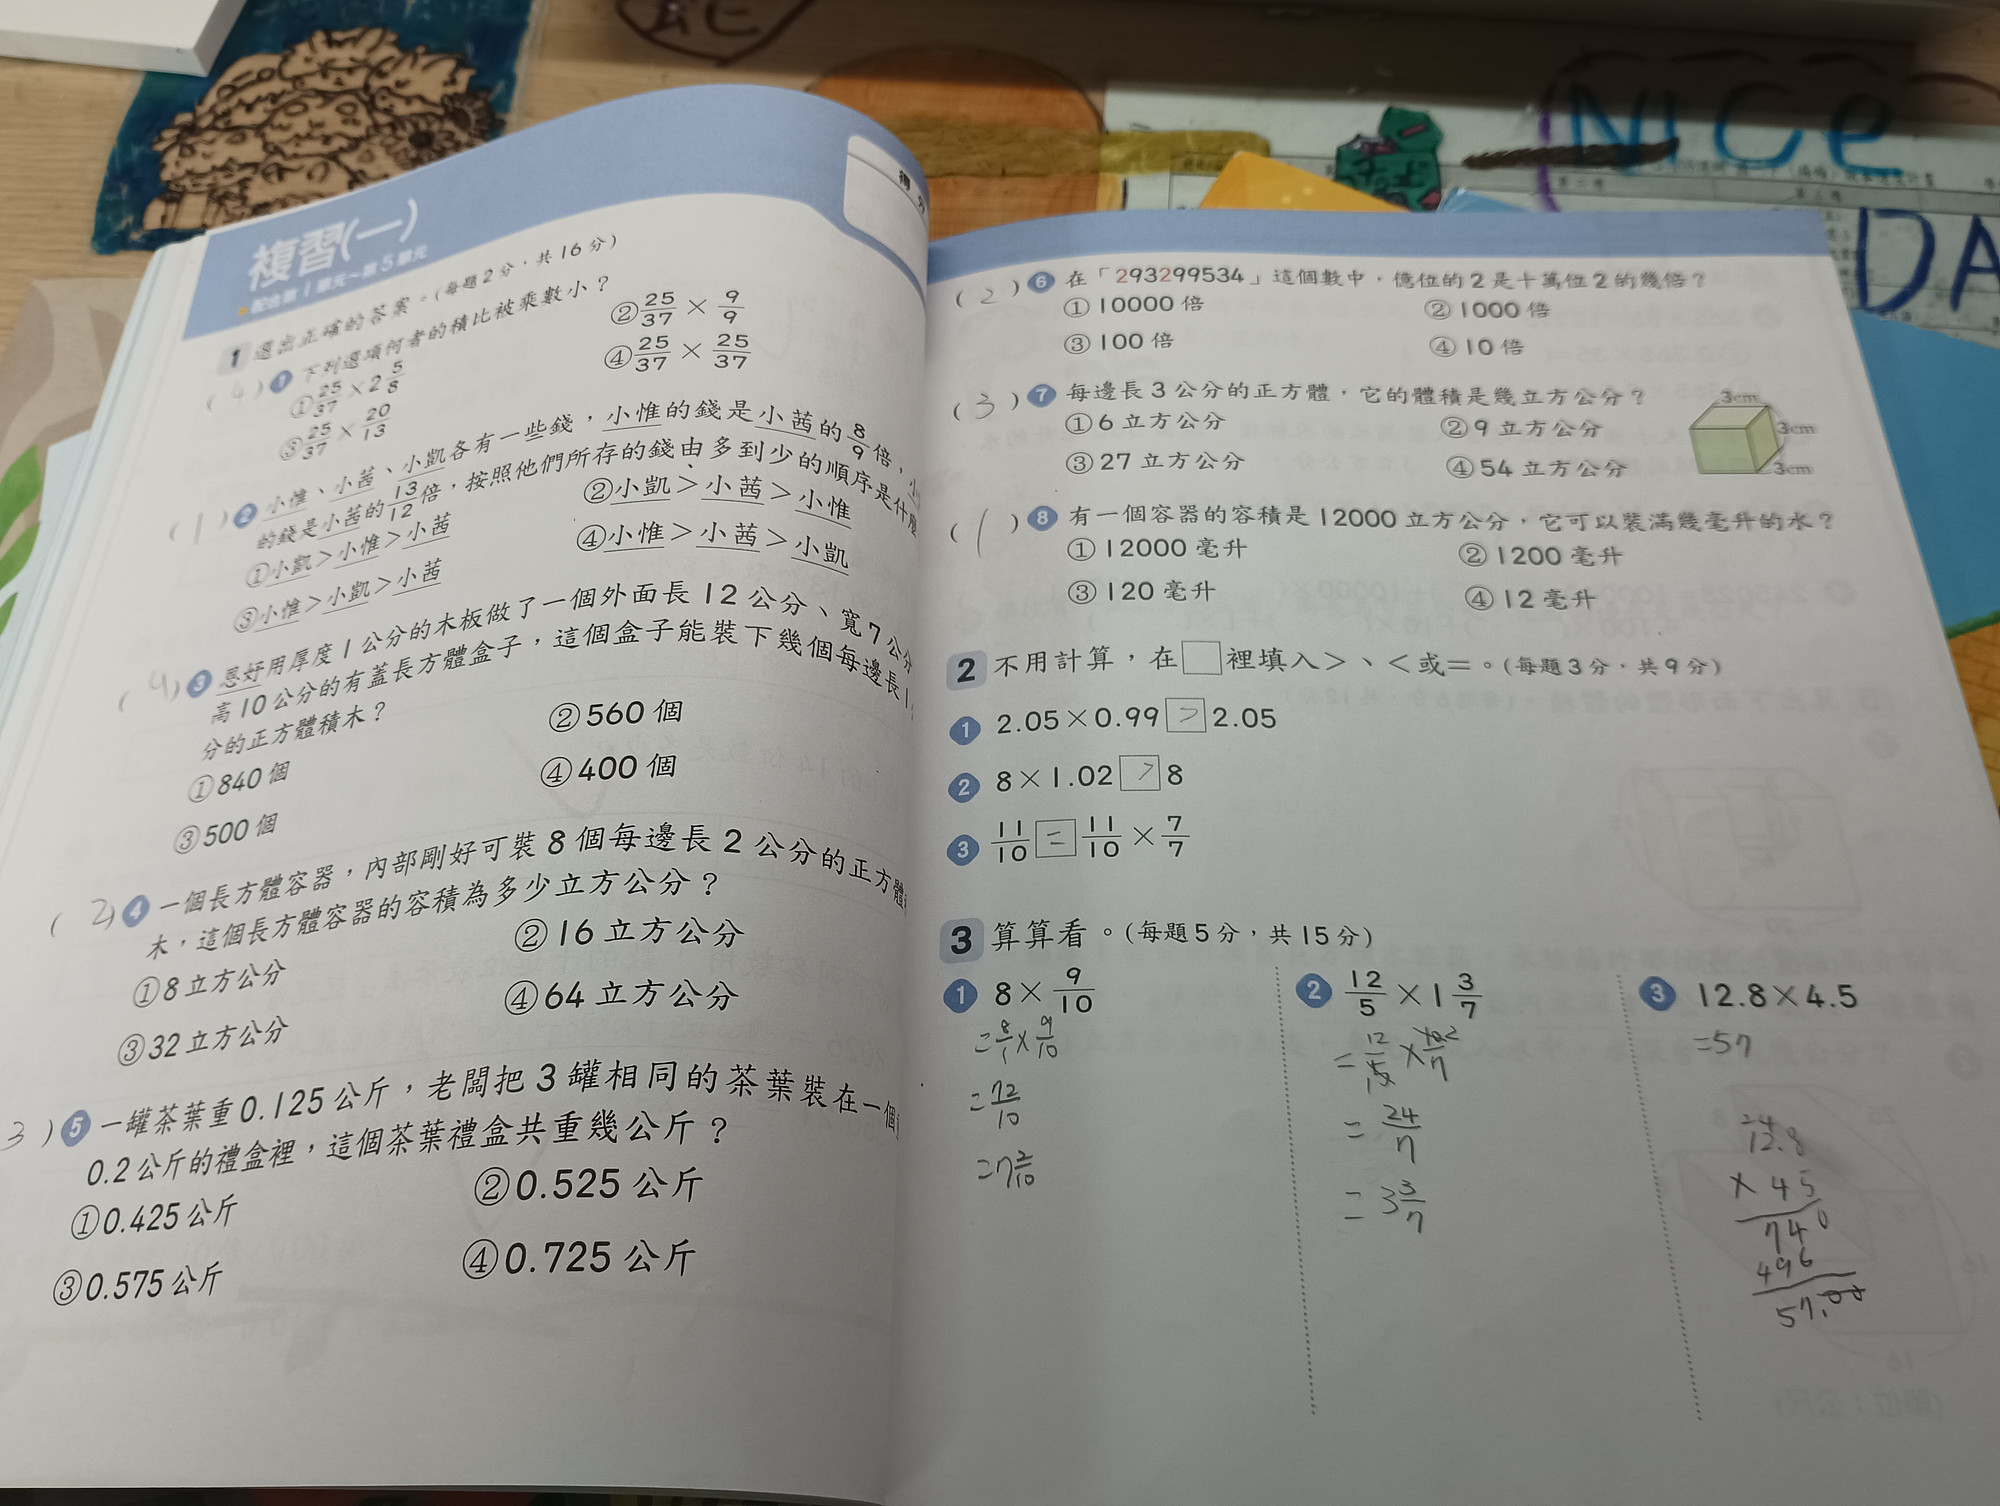 複習(一)
配合第1單元~第5單元
得分
1 選出正確的答案。(每題2分,共16分)
(4) 1 下列選項何者的積比被乘數小?
①25/37 × 2 5/8 ②25/37 × 9/9
③25/37 × 20/13 ④25/37 × 25/37
(1) 2 小惟、小茜、小凱各有一些錢,小惟的錢是小茜的8/9倍,小
的錢是小茜的13/12倍,按照他們所存的錢由多到少的順序是什麼
①小凱>小惟>小茜 ②小凱>小茜>小惟
③小惟>小凱>小茜 ④小惟>小茜>小凱
(4) 3 恩好用厚度1公分的木板做了一個外面長12公分、寬7公分
高10公分的有蓋長方體盒子,這個盒子能裝下幾個每邊長1
分的正方體積木?
①840個 ②560個
③500個 ④400個
(2) 4 一個長方體容器,內部剛好可裝8個每邊長2公分的正方體
木,這個長方體容器的容積為多少立方公分?
①8立方公分 ②16立方公分
③32立方公分 ④64立方公分
3) 5 一罐茶葉重0.125公斤,老闆把3罐相同的茶葉裝在一個
0.2公斤的禮盒裡,這個茶葉禮盒共重幾公斤?
①0.425公斤 ②0.525公斤
③0.575公斤 ④0.725公斤
(2) 6 在「293299534」這個數中,億位的2是十萬位2的幾倍?
①10000倍 ②1000倍
③100倍 ④10倍
(3) 7 每邊長3公分的正方體,它的體積是幾立方公分?
①6立方公分 ②9立方公分
③27立方公分 ④54立方公分
3cm
3cm
3cm
(1) 8 有一個容器的容積是12000立方公分,它可以裝滿幾毫升的水?
①12000毫升 ②1200毫升
③120毫升 ④12毫升
2 不用計算,在□裡填入>、<或=。(每題3分,共9分)
1 2.05×0.99 > 2.05
2 8×1.02 > 8
3 11/10 = 11/10 × 7/7
3 算算看。(每題5分,共15分)
1 8×9/10
=8/1×9/10
=72/10
=7 2/10
2 12/5 × 1 3/7
=12/5×10/7
=24/7
=3 3/7
3 12.8×4.5
=57
12.8
×45
740
496
57.00
NiCe
DA